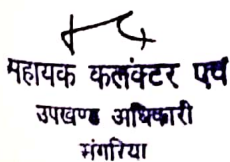 महायक कलंक्टर एवं
उपखण्ड अधिकारी
मंगरिया